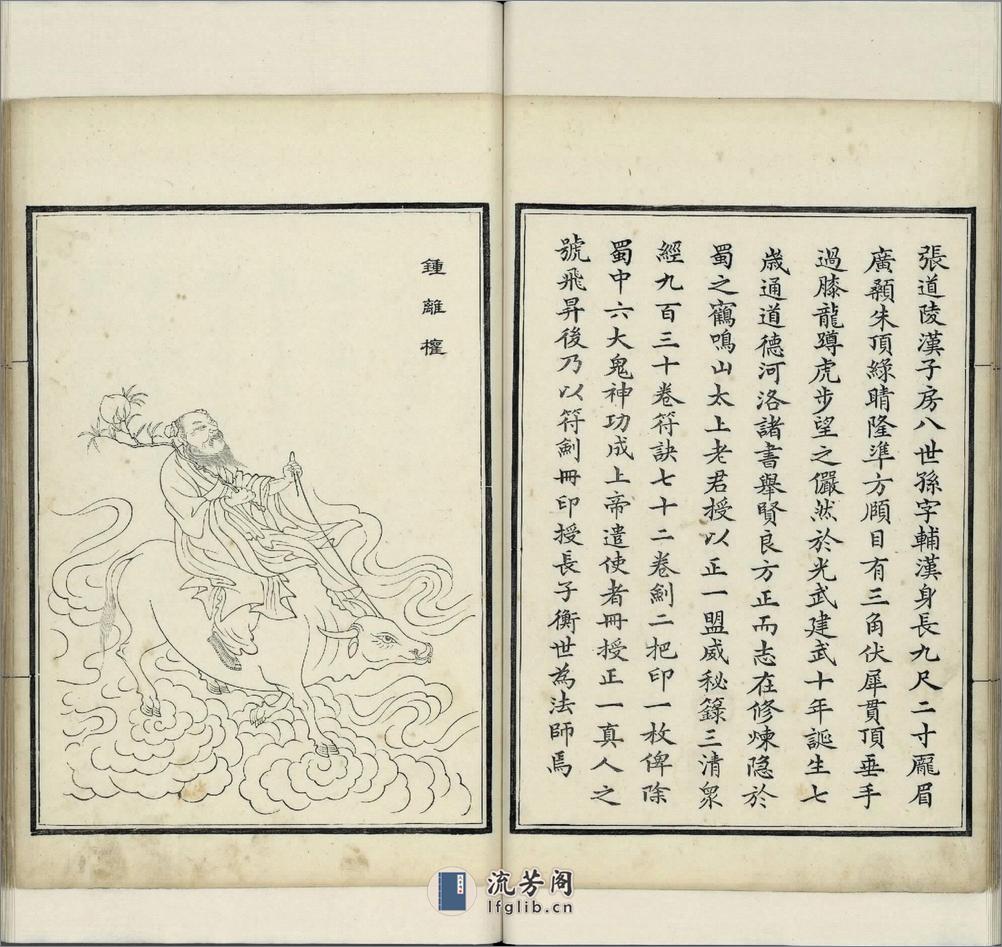 張道陵漢子房八世孫字輔漢身長九尺二寸龐眉
廣顙朱頂綠睛隆準方頤目有三角伏犀貫頂垂手
過膝龍蹲虎步望之儼然於光武建武十年誕生七
歲通道德河洛諸書舉賢良方正而志在修煉隐於
蜀之鶴鳴山太上老君授以正一盟威秘籙三清眾
經九百三十卷符訣七十二卷劍二把印一枚俾除
蜀中六大鬼神功成上帝遣使者冊授正一真人之
號飛昇後乃以符劍冊印授長子衡世為法師焉
鍾離權
流芳阁
lfglib.cn